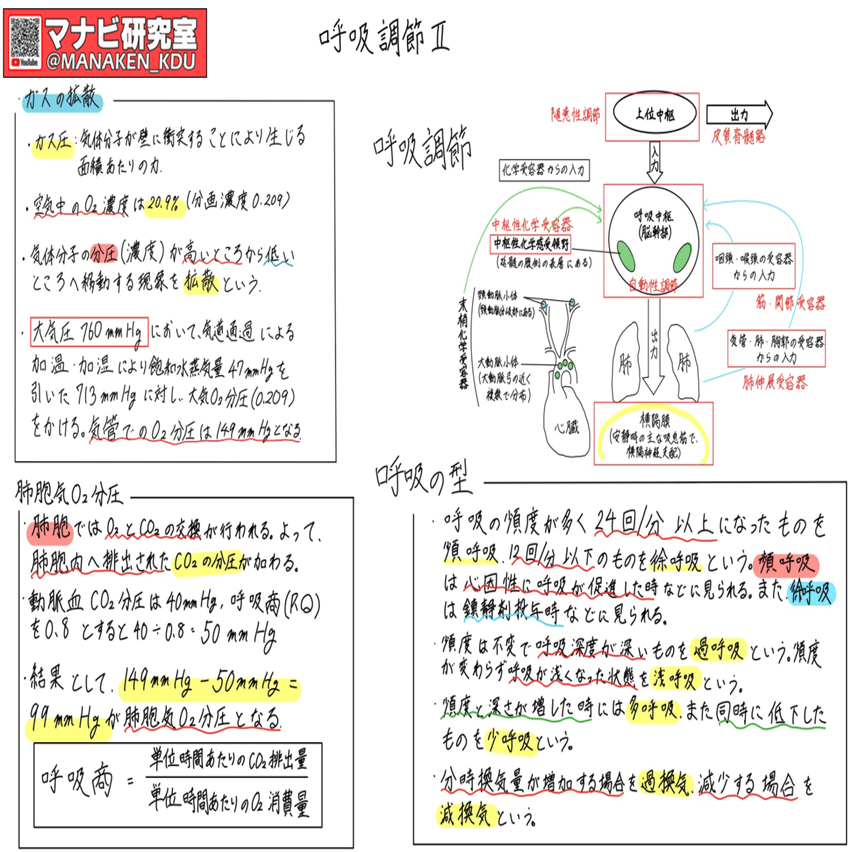 マナビ研究室
@MANAKEN_KDU
YouTube
呼吸調節Ⅱ
・ガスの拡散
・ガス圧:気体分子が壁に衝突することにより生じる
面積あたりの力.
・空気中のO₂濃度は20.9% (分画濃度0.209)
・気体分子の分圧(濃度)が高いところから低い
ところへ移動する現象を拡散という.
・大気圧760mmHgにおいて、気道通過による
加温・加湿により飽和水蒸気量47mmHgを
引いた713mmHgに対し、大気O₂分圧(0.209)
をかける。気管でのO₂分圧は149mmHgとなる.
肺胞気O₂分圧
・肺胞ではO₂とCO₂の交換が行われる。よって、
肺胞内へ排出されたCO₂の分圧が加わる。
・動脈血CO₂分圧は40mmHg, 呼吸商(RQ)
を0.8とすると40÷0.8=50mmHg
・結果として、149mmHg-50mmHg=
99mmHgが肺胞気O₂分圧となる.
呼吸商 = 単位時間あたりのCO₂排出量
単位時間あたりのO₂消費量
呼吸調節
随意性調節
上位中枢
出力
皮質脊髄路
入力
化学受容器からの入力
呼吸中枢
(脳幹部)
自動性調節
中枢性化学受容器
中枢性化学感受領野
(延髄の腹側の表層にある)
咽頭・喉頭の受容器
からの入力
筋・関節受容器
末梢化学受容器
頸動脈小体
(頸動脈分岐部にある)
大動脈小体
(大動脈弓の近く
複数で分布)
心臓
出力
肺
肺
気管・肺・胸郭の受容器
からの入力
肺伸展受容器
横隔膜
(安静時の主な吸息筋で、
横隔神経支配)
呼吸の型
・呼吸の頻度が多く24回/分以上になったものを
頻呼吸、12回/分以下のものを徐呼吸という。頻呼吸
は心因性に呼吸が促進した時などに見られる。また、徐呼吸
は鎮静剤投与時などに見られる。
・頻度は不変で呼吸深度が深いものを過呼吸という。頻度
が変わらず呼吸が浅くなった状態を浅呼吸という。
・頻度と深さが増した時には多呼吸、また同時に低下した
ものを少呼吸という。
・分時換気量が増加する場合を過換気、減少する場合を
減換気という。